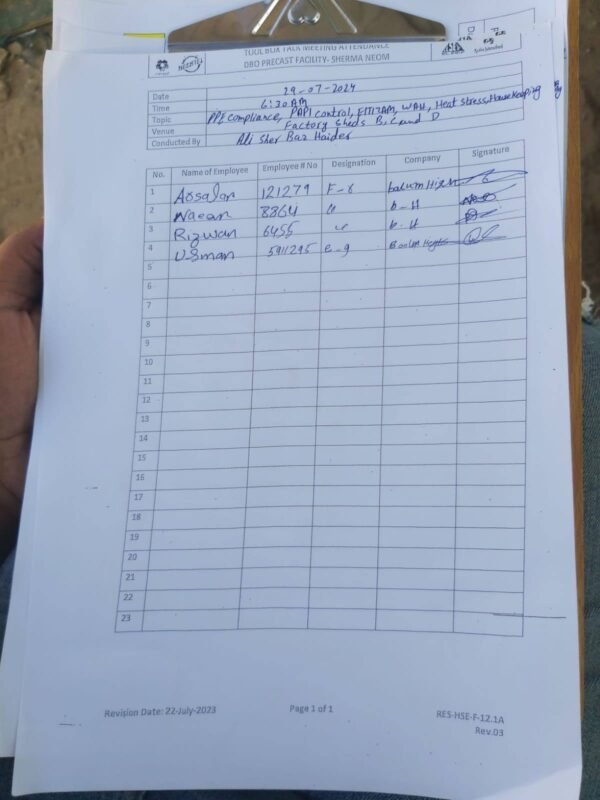 TOOL BOX TALK MEETING ATTENDANCE
DBO PRECAST FACILITY- SHERMA NEOM
Date 29-07-2024
Time 6:30 AM
Topic PPE compliance, PAPI control, WAH, Heat stress, Housekeeping
Venue Factory Sheds B, C and D
Conducted By Ali Sher Baz Haider
No. Name of Employee Employee # No Designation Company Signature
1 Arsalan 121279
2 8864 " b-H
3 Rizwan 6455 " b-H
4 Usman 5911295 e-g
5
6
7
8
9
10
11
12
13
14
15
16
17
18
19
20
21
22
23
Revision Date: 22-July-2023 Page 1 of 1 RES-HSE-F-12.1A
Rev.03